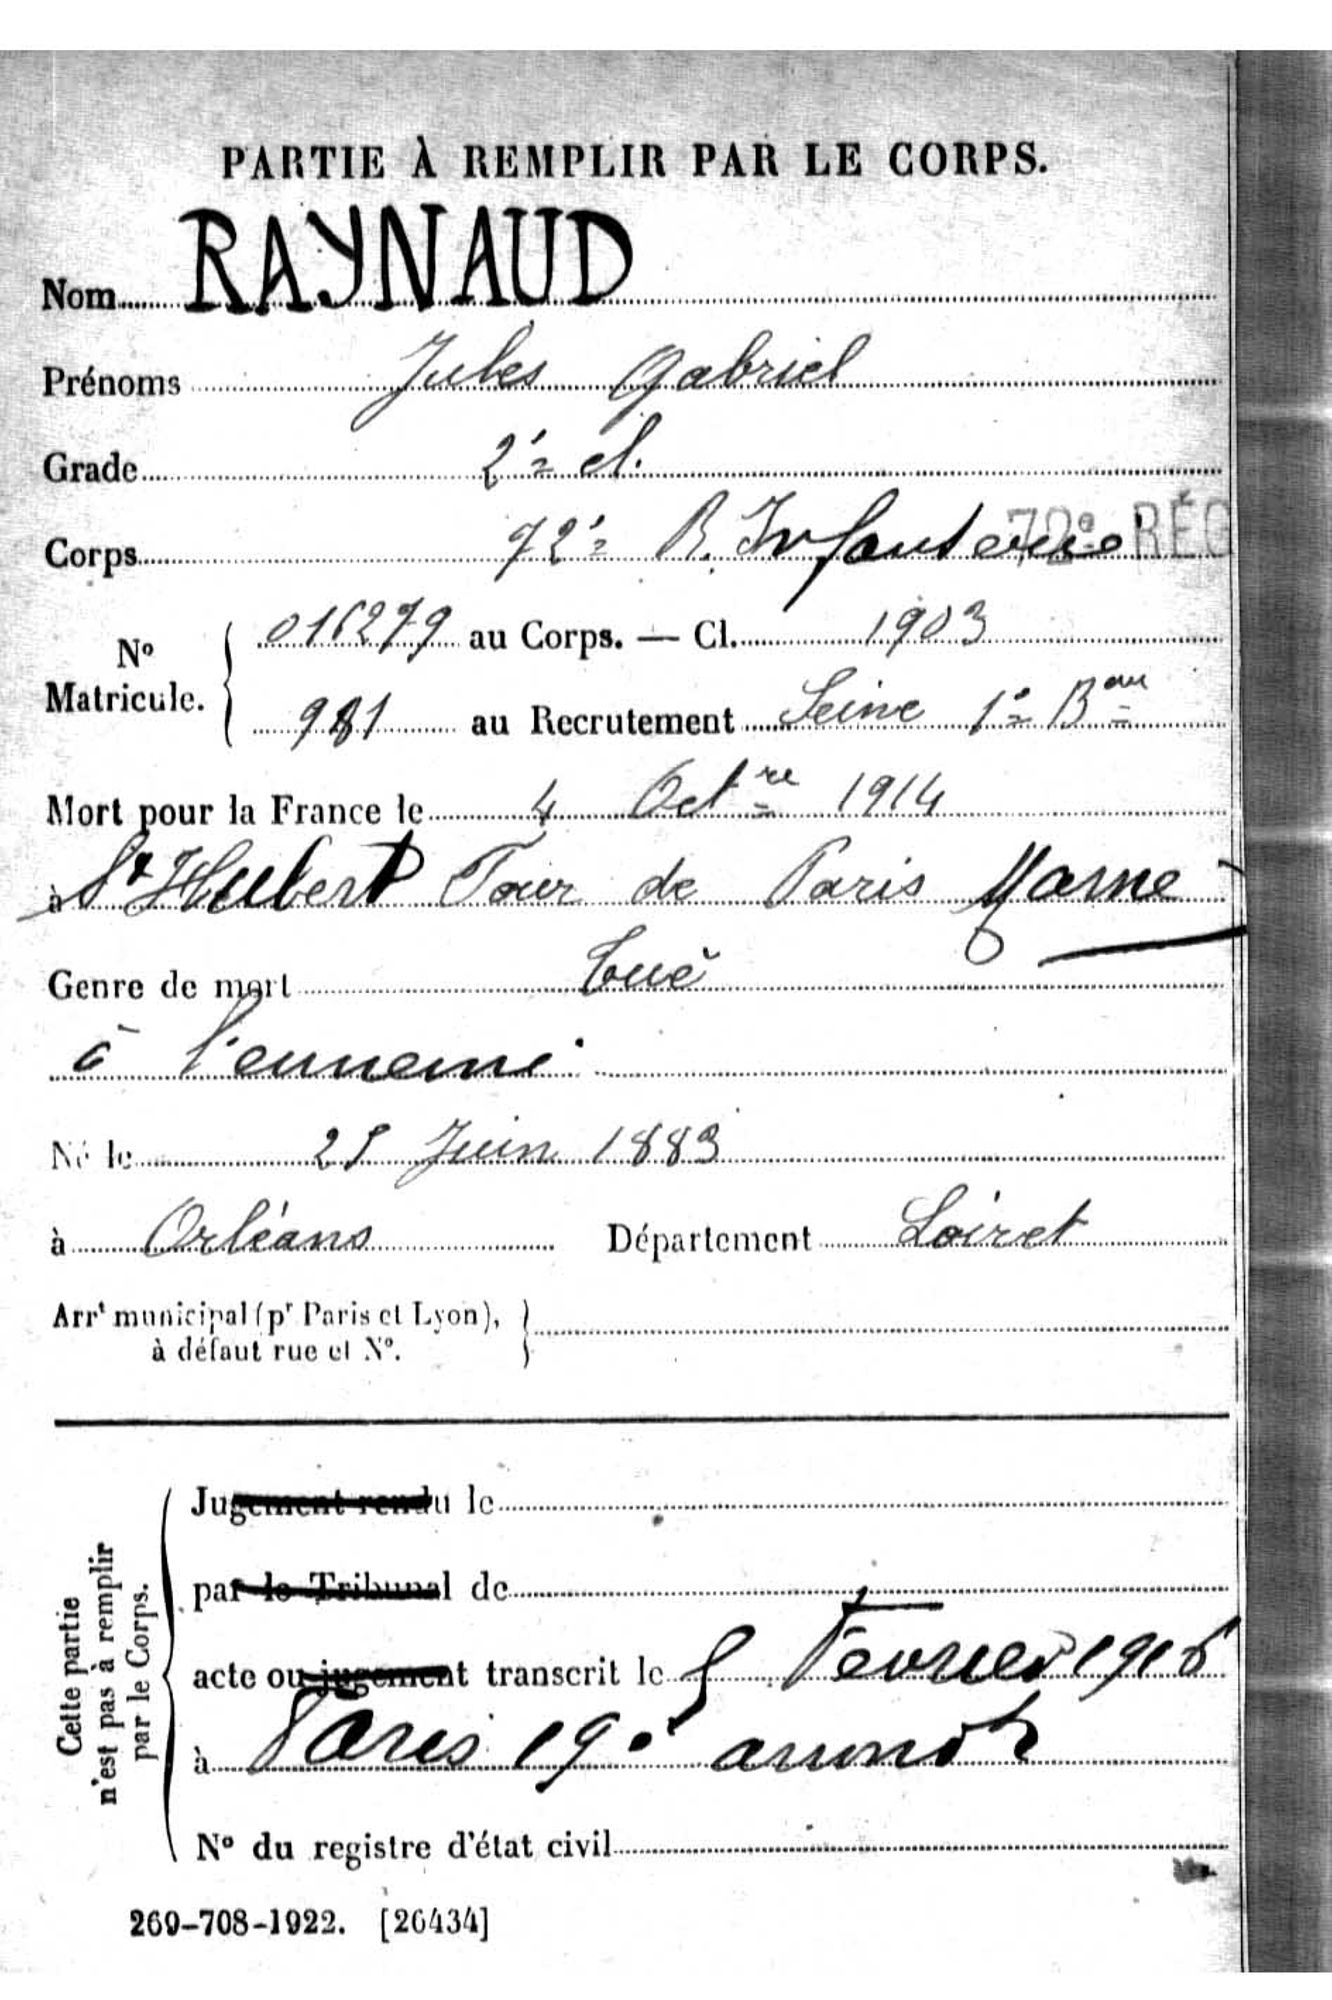 PARTIE À REMPLIR PAR LE CORPS.
Nom RAYNAUD
Prénoms Jules Gabriel
Grade 2e cl.
Corps 72e R. Infanterie 72e RÉG
No Matricule. 016279 au Corps. — Cl. 1903
981 au Recrutement Seine 1e Bau
Mort pour la France le 4 Octre 1914
à St Hubert Four de Paris Marne
Genre de mort tué
à l'ennemi
Né le 25 Juin 1883
à Orléans Département Loiret
Arrt municipal (pr Paris et Lyon),
à défaut rue et No.
Cette partie
n'est pas à remplir
par le Corps.
Jugement rendu le
par le Tribunal de
acte ou jugement transcrit le 5 Février 1916
à Paris 19e arrondt
No du registre d'état civil
269-708-1922. [26434]